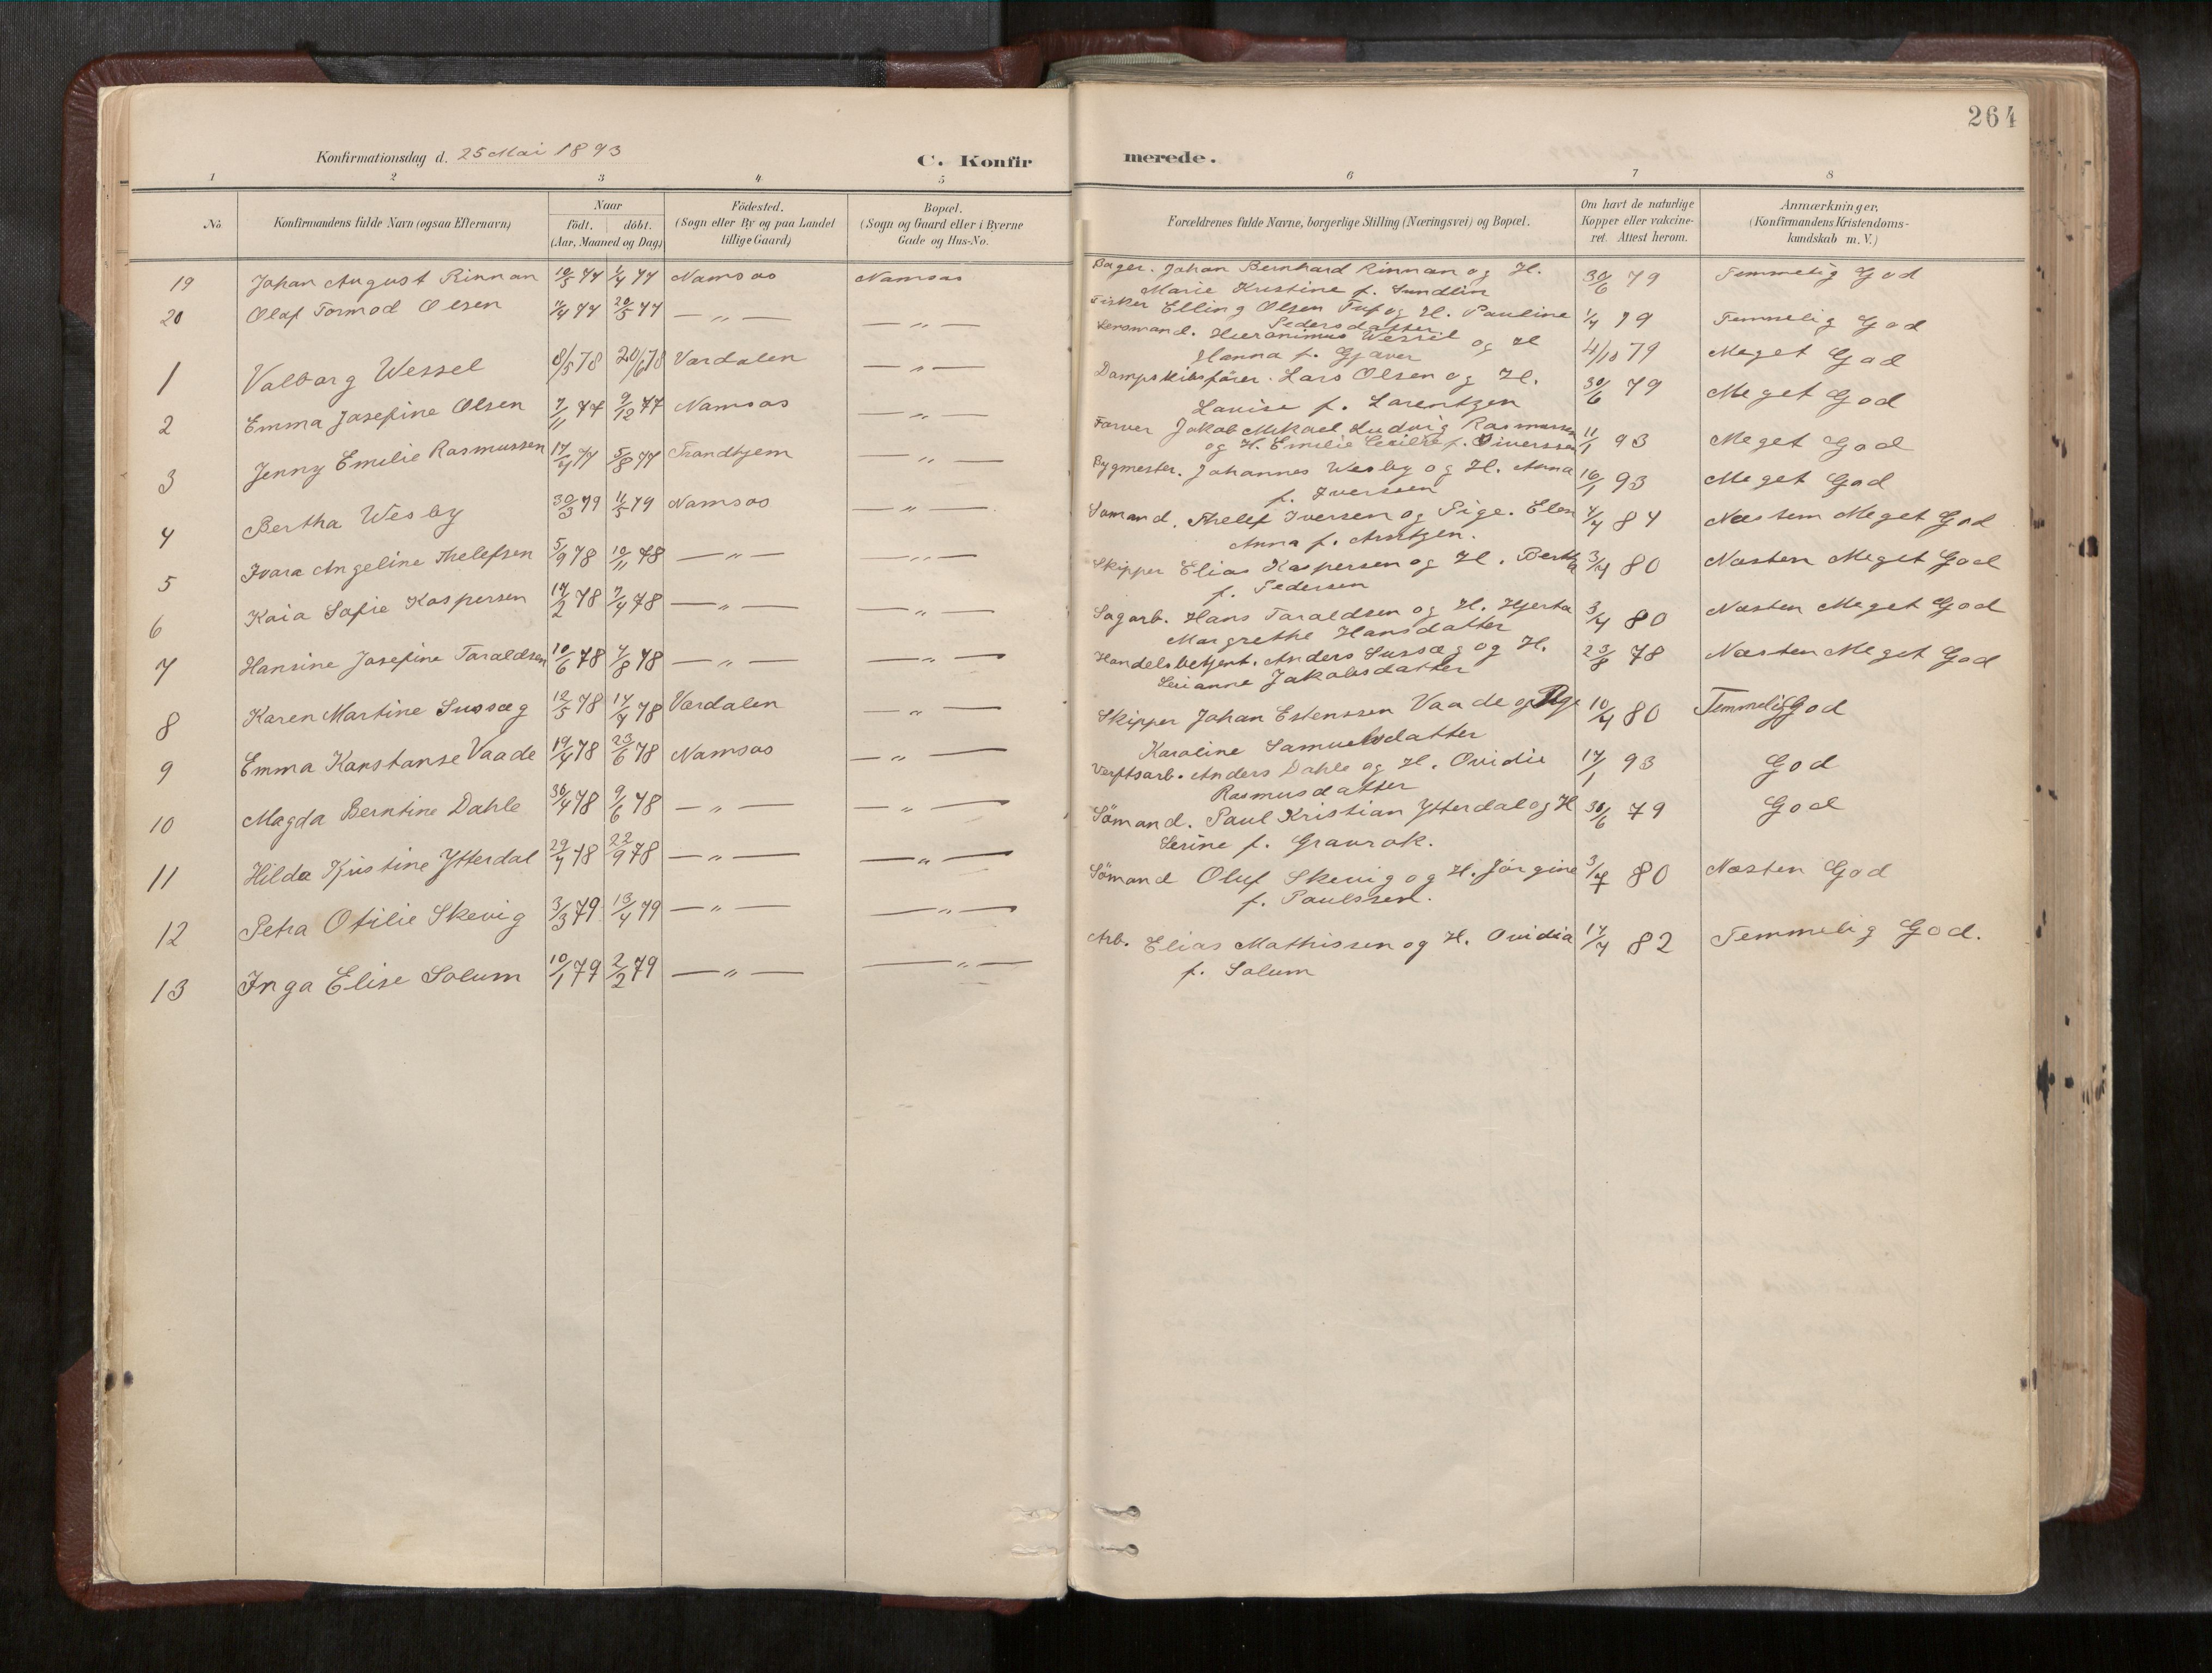 264
Konfirmationsdag d. 25 Mai 1893
C. Konfirmerede.
1 2 3 4 5 6 7 8
No
Konfirmandens fulde Navn (ogsaa Efternavn)
Naar
födt. döbt.
(Aar, Maaned og Dag)
Födested.
(Sogn eller By og paa Landet
tillige Gaard)
Bopæl.
(Sogn og Gaard eller i Byerne
Gade og Hus-No.
Forældrenes fulde Navne, borgerlige Stilling (Næringsvei) og Bopæl.
Om havt de naturlige
Kopper eller vakcine-
ret. Attest herom.
Anmærkninger,
(Konfirmandens Kristendoms-
kundskab m. V.)
19 Johan August Rinnan 10/3 77 1/4 77 Namsos Namsos Bager. Johan Bernhard Rinnan og H. 30/6 79 Temmelig God
Marie Kristine f. Sundlin
20 Olaf Tormod Olsen 7/4 77 20/5 77 — " — — " — Fisker Elling Olsen og H. Pauline 1/4 79 Temmelig God
Pedersdatter
1 Valborg Wessel 8/5 78 20/6 78 Værdalen — " — Lensmand. Hieronimus Wessel og H 4/10 79 Meget God
Hanna f. Gjæver
2 Emma Josefine Olsen 7/11 77 9/12 77 Namsos — " — Dampskibsfører. Lars Olsen og H. 30/6 79 Meget God
Lovise f. Lorentzen
3 Jenny Emilie Rasmussen 17/4 77 5/8 77 Trondhjem — " — Farver Jakob Mikael Ludvig Rasmussen 11/1 93 Meget God
og H. Emilie Cecilie f. Siverssen
4 Bertha Wesby 30/3 79 11/5 79 Namsos — " — Bygmester. Johannes Wesby og H. Anna 16/1 93 Meget God
f. Iverssen
5 Ivara Angeline Thelefsen 5/9 78 10/11 78 — " — — " — Sømand. Thelef Iversen og Pige. Elen 4/4 84 Næsten Meget God
Anna f. Arntzen.
6 Kaia Sofie Kaspersen 17/2 78 7/4 78 — " — — " — Skipper Elias Kaspersen og H. Bertha 3/4 80 Næsten Meget God
f. Pedersen
7 Hansine Josefine Taraldsen 10/6 78 4/8 78 — " — — " — Sagarb. Hans Taraldsen og H. Hjerta 3/4 80 Næsten Meget God
Margrethe Hansdatter
8 Karen Martine Sussæg 12/5 78 14/7 78 Værdalen — " — Handelsbetjent. Anders Sussæg og H. 23/8 78 Næsten Meget God
Serianne Jakobsdatter
9 Emma Konstanse Vaade 19/4 78 23/6 78 Namsos — " — Skipper Johan Estenssen Vaade og Pige 10/4 80 Temmelig God
Karoline Samuelsdatter
10 Magda Berntine Dahle 30/4 78 9/6 78 — " — — " — Verftsarb. Anders Dahle og H. Ovidie 17/1 93 God
Rasmusdatter
11 Hilda Kristine Ytterdal 29/7 78 22/9 78 — " — — " — Sömand. Paul Kristian Ytterdal og H 30/6 79 God
Serine f. Granrok.
12 Petra Otilie Skevig 3/3 79 13/4 79 — " — — " — Sömand Oluf Skevig og H. Jörgine 3/4 80 Næsten God
f. Paulssen.
13 Inga Elise Solum 10/1 79 2/2 79 — " — — " — Arb. Elias Mathissen og H. Ovidia 17/7 82 Temmelig God.
f. Solum